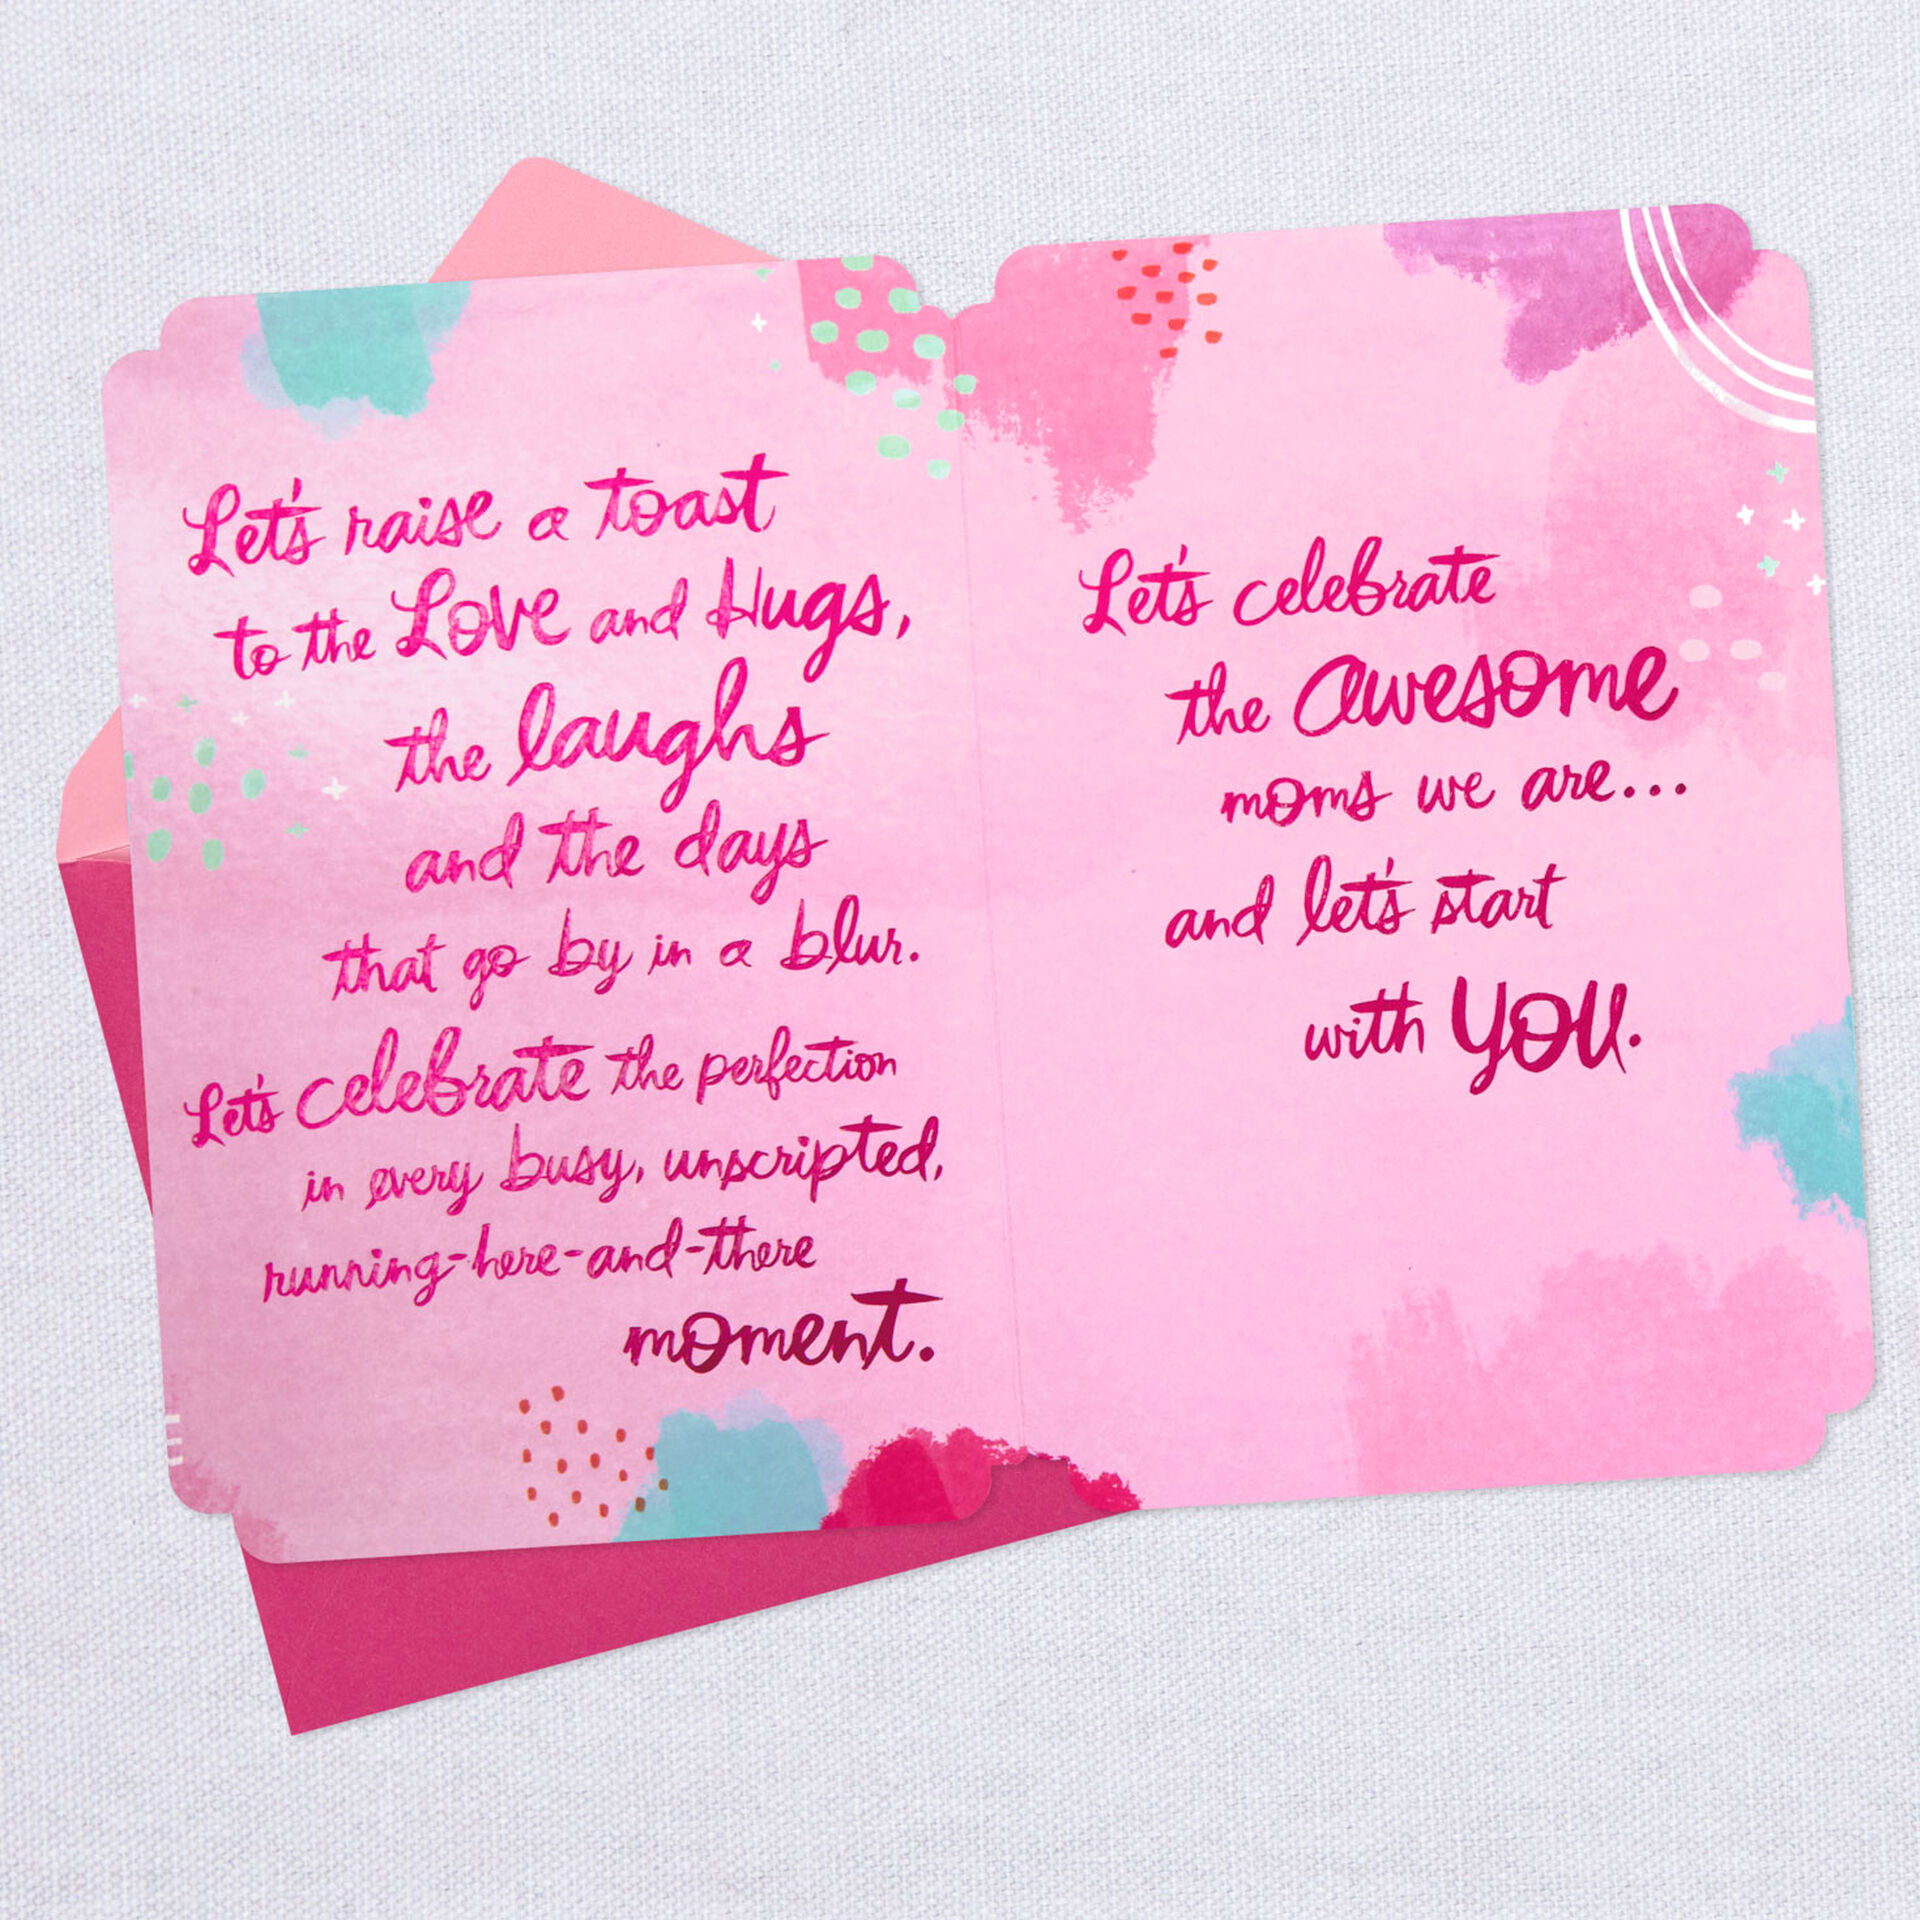 Let's raise a toast
to the Love and Hugs,
the laughs
and the days
that go by in a blur.
Let's celebrate the perfection
in every busy, unscripted,
running-here-and-there
moment.
Let's celebrate
the awesome
moms we are...
and let's start
with YOU.